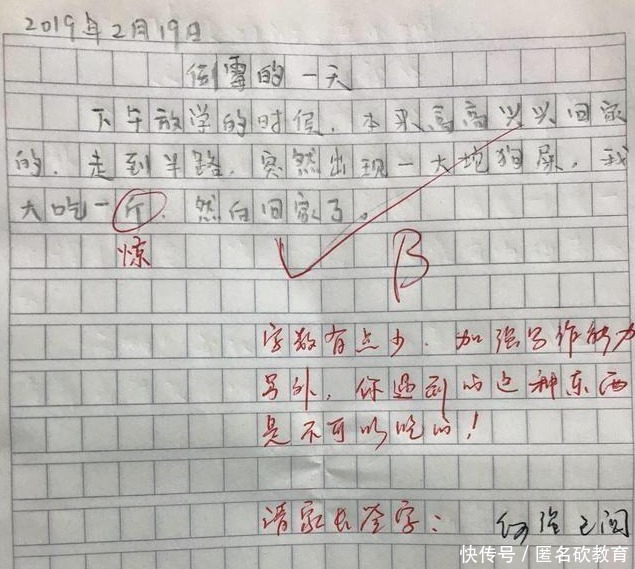 2019年2月19日
倒霉的一天
下午放学的时候，本来高高兴兴回家
的，走到半路，突然出现一大坨狗屎，我
大吃一斤，然后回家了。
惊
B
字数有点少．加强写作能力
另外，你遇到的这种东西
是不可以吃的！
请家长签字：何强已阅
快传号／匿名砍教育